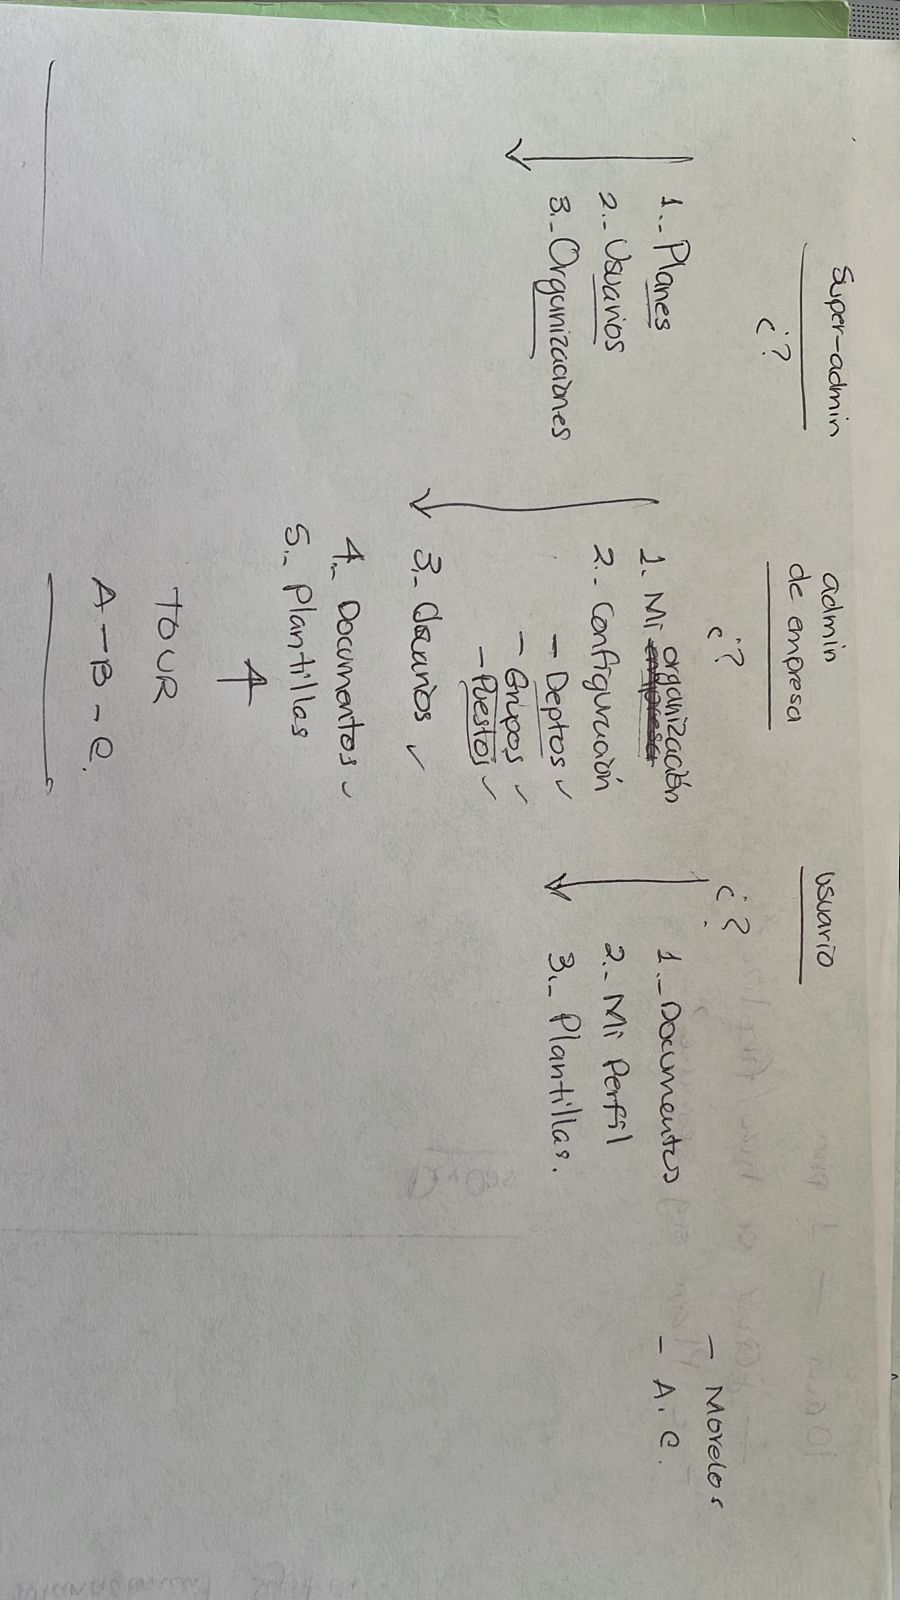 Super-admin
¿?
1.- Planes
2.- Usuarios
3.- Organizaciones
admin
de empresa
¿?
1. Mi organización
2.- Configuración
- Deptos ✓
- Grupos ✓
- Puestos ✓
3.- Usuarios ✓
4.- Documentos ✓
5.- Plantillas
TOUR
A - B - C.
usuario
¿?
1.- Documentos
2.- Mi Perfil
3.- Plantillas.
- Morelos
- A. C.